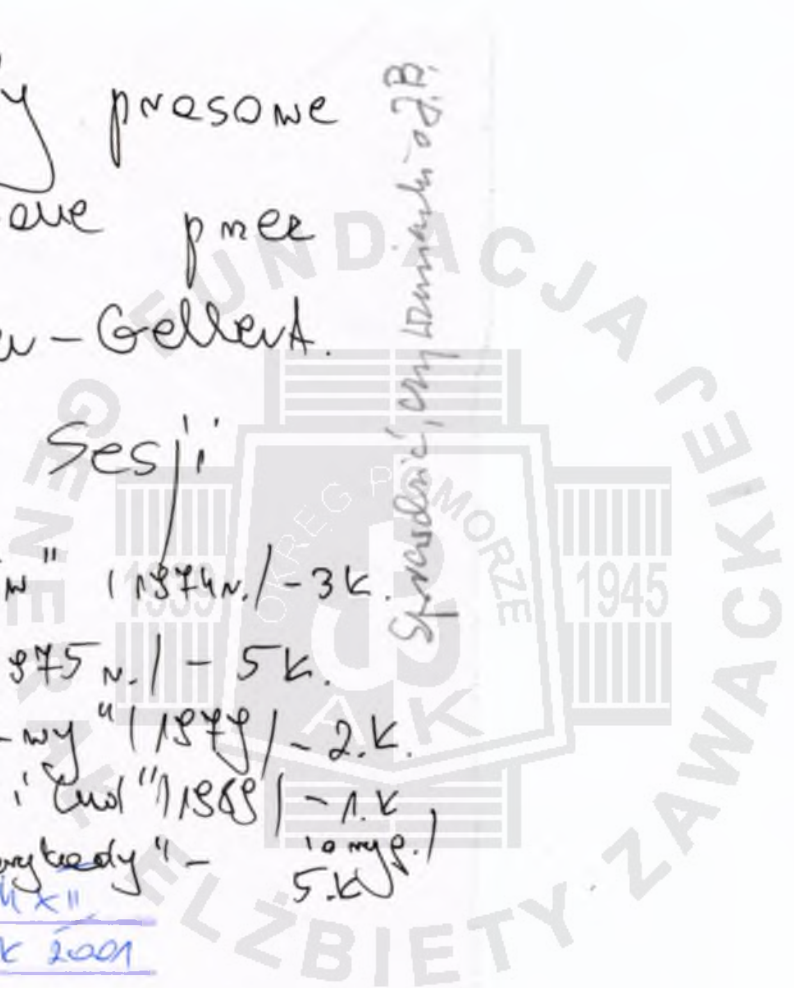 y prasowe
owe przez
w-Gellert.
Sesji
w" (1974 r./ - 3 k.
975 r./ - 5 k.
-wy" (1979/ - 2.k.
i Lud" /1989/ - 1.k
wykłady" - 5.k
k 2001
Sprawdzić, czy wzmianki o J.B.
FUNDACJA GENERAŁ ELŻBIETY ZAWACKIEJ
OKRĘG POMORZE
1939 1945
AK